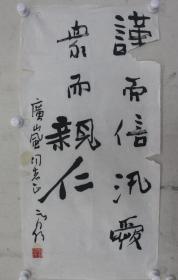 謹而信汎愛
衆而親仁
廣同志正